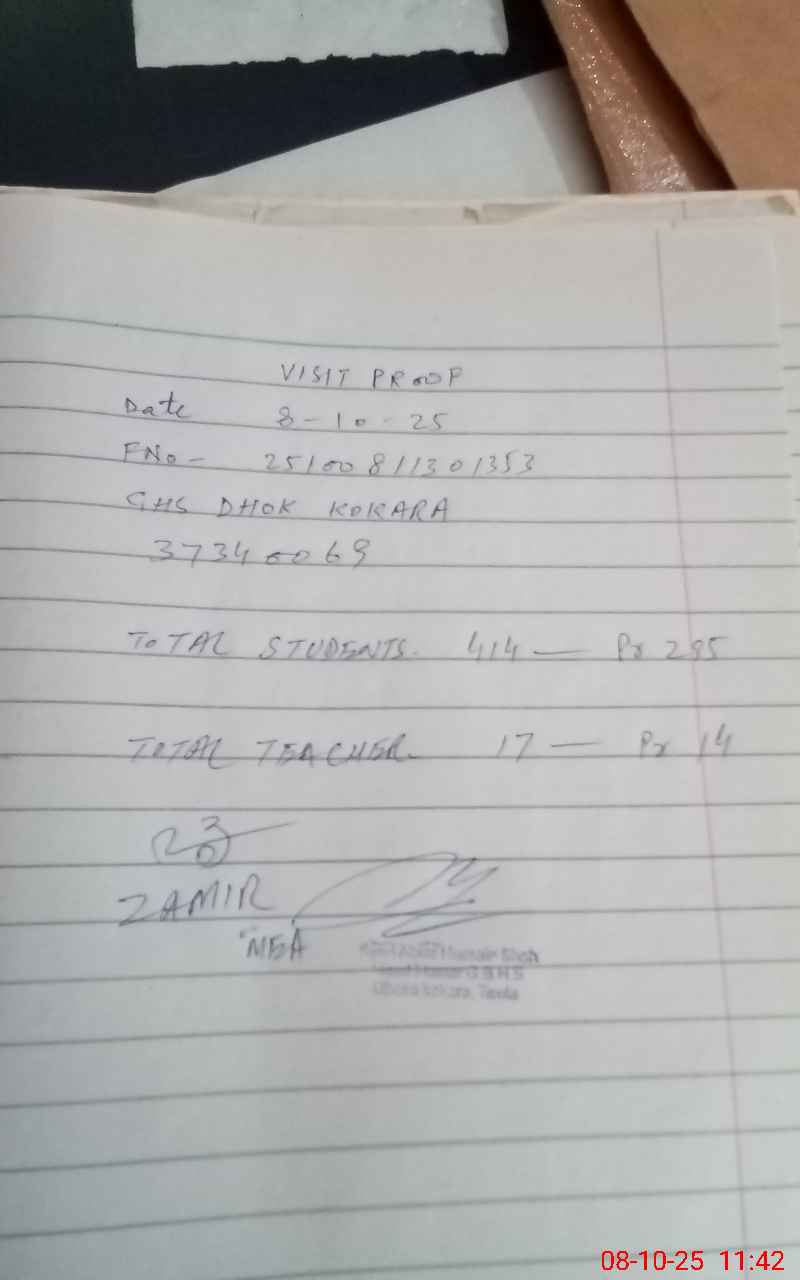 VISIT PROOF
Date 8-10-25
FNo- 25100811301353
GHS DHOK KOKARA
37340069
TOTAL STUDENTS. 414 — Pr 295
TOTAL TEACHER. 17 — Pr 14
ZAMIR
MEA
Hussain Shah
G.B.H.S
Kokara, Taxila
08-10-25 11:42